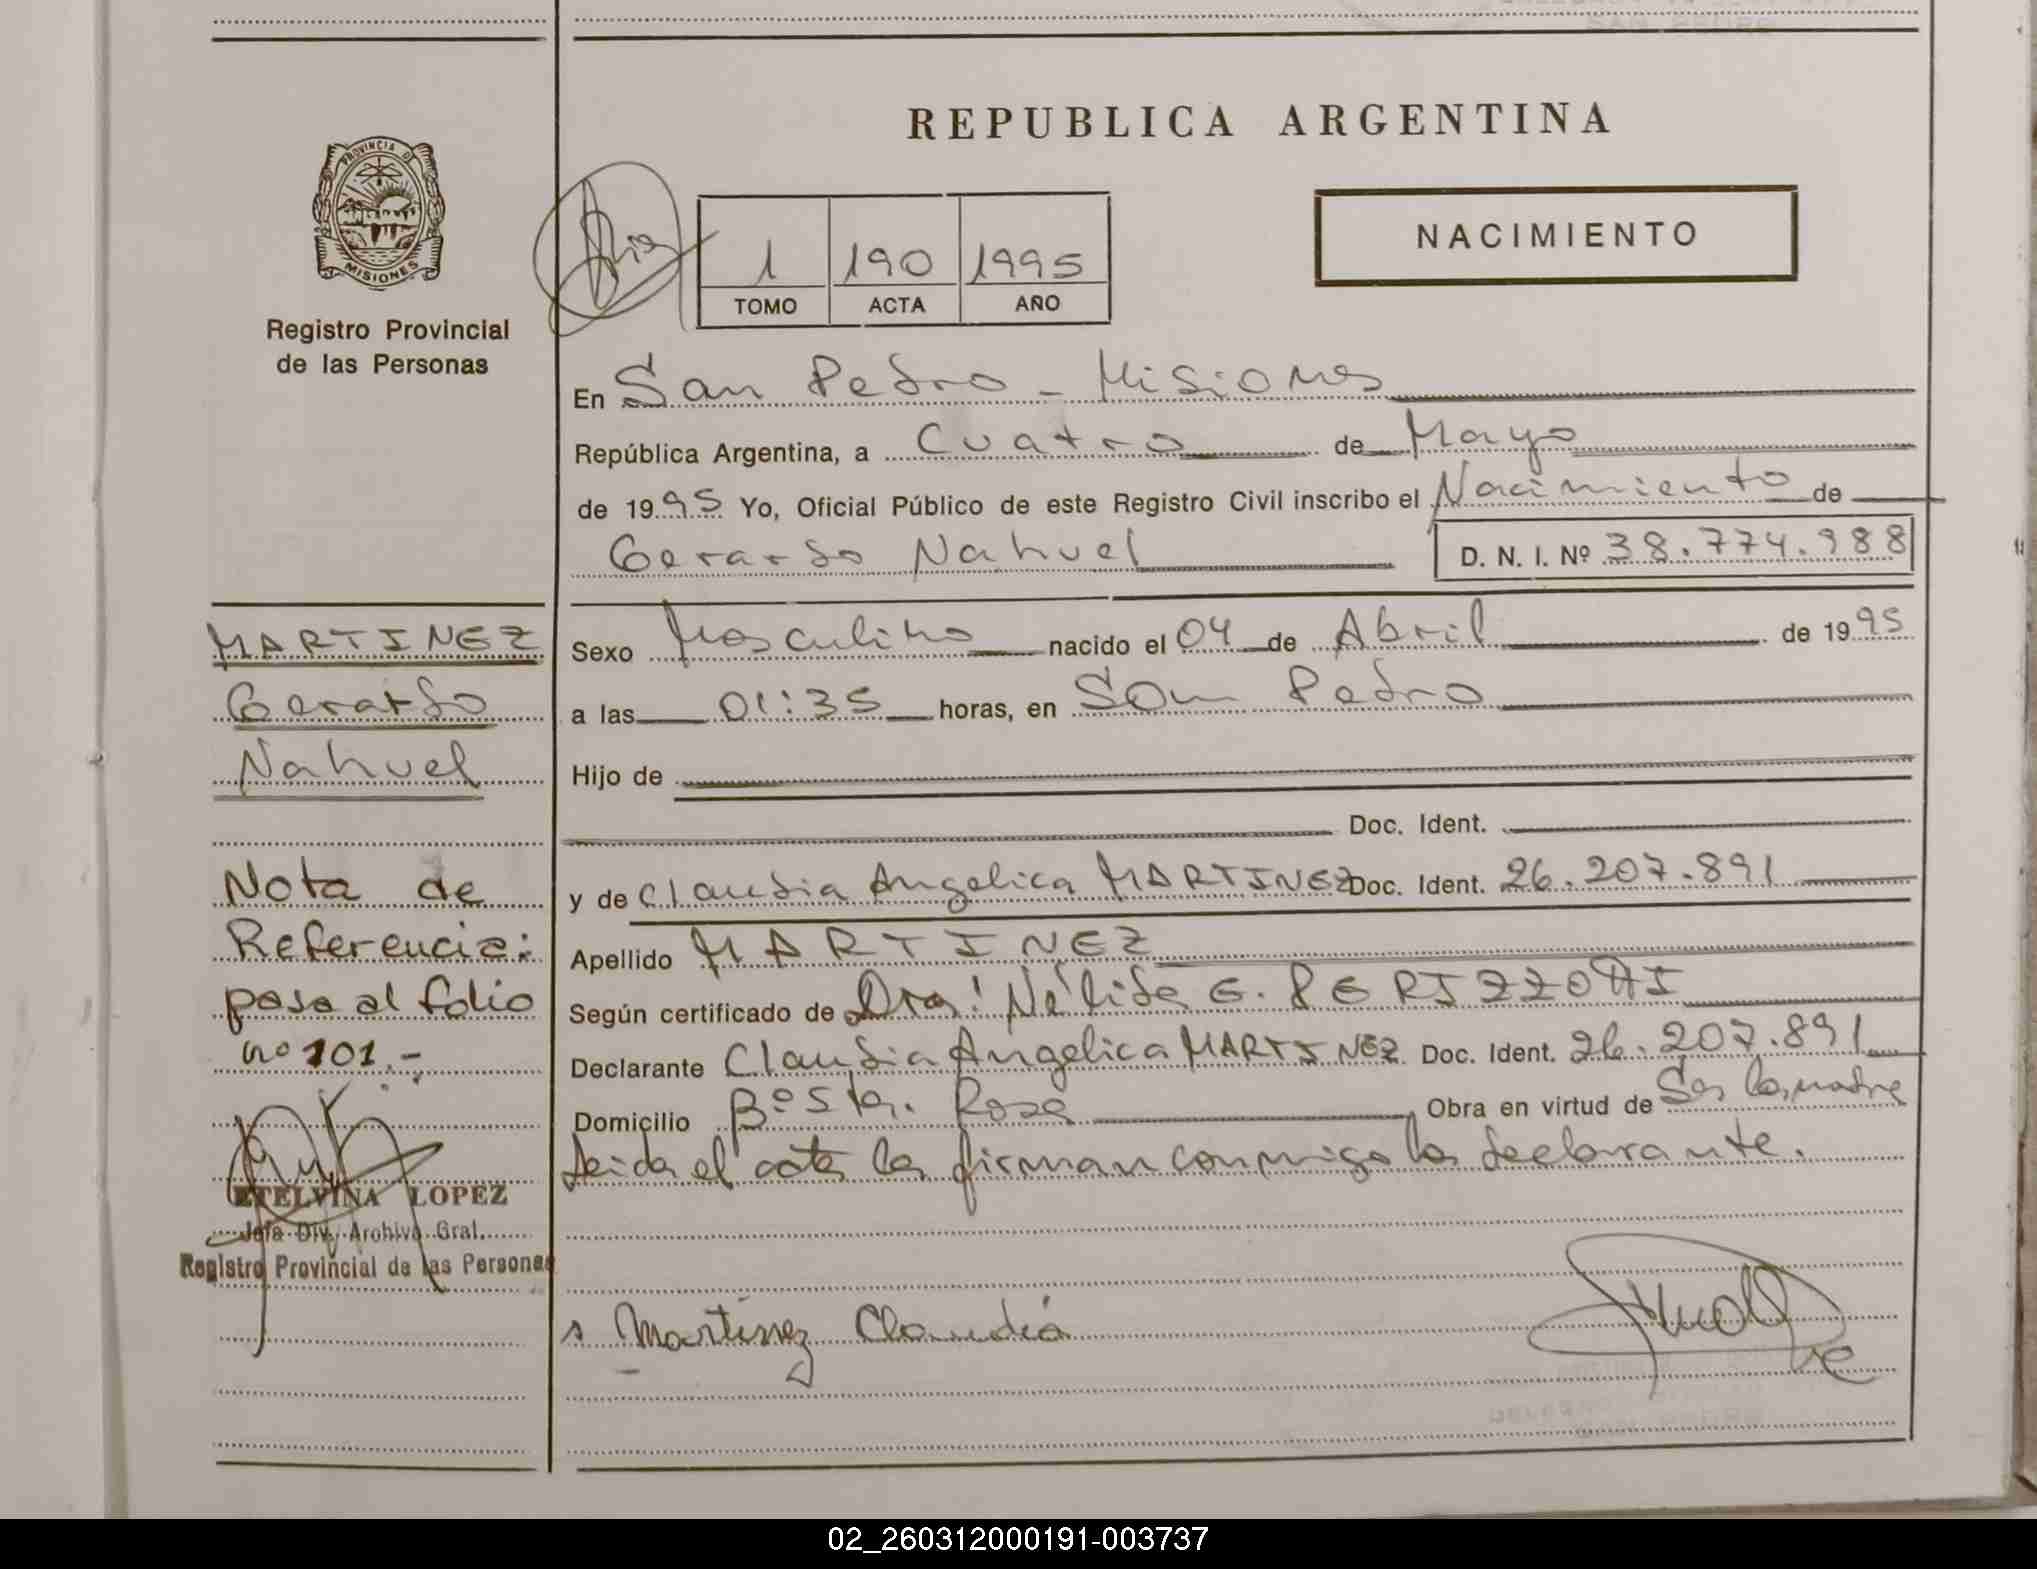 REPUBLICA ARGENTINA
PROVINCIA DE
MISIONES
Registro Provincial
de las Personas
1 190 1995
TOMO ACTA AÑO
NACIMIENTO
En San Pedro - Misiones
República Argentina, a Cuatro de Mayo
de 1995 Yo, Oficial Público de este Registro Civil inscribo el Nacimiento de
Gerardo Nahuel D. N. I. Nº 38.774.988
Sexo Masculino nacido el 04 de Abril de 1995
a las 01:35 horas, en San Pedro
Hijo de
Doc. Ident.
y de Claudia Angelica MARTINEZ Doc. Ident. 26.207.891
Apellido MARTINEZ
Según certificado de Dra: Nélida G.
Declarante Claudia Angelica MARTINEZ Doc. Ident. 26.207.891
Domicilio Bº Sta. Rosa Obra en virtud de Ser la madre
Leida el acta la firman conmigo la declarante.
Martinez Claudia
MARTINEZ
Gerardo
Nahuel
Nota de
Referencia:
pasa al folio
nº 101.-
ETELVINA LOPEZ
Jefa Div. Archivo Gral.
Registro Provincial de las Personas
02_260312000191-003737